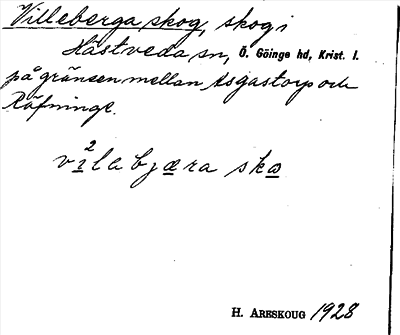 Villeberga skog, skog i
Hästveda sn, Ö. Göinge hd, Krist. l.
på gränsen mellan Asgastorp och
Räfninge.
2
vilabjæra skɷ
H. Areskoug 1928